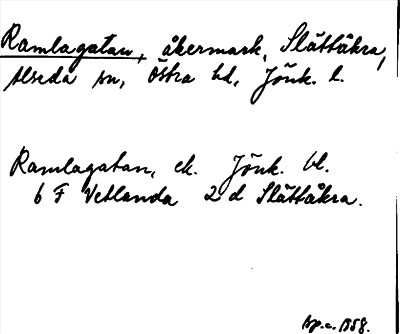 Ramlagatan, åkermark, Slättåkra,
Alseda sn, Östra hd, Jönk. l.
Ramlagatan, ek. Jönk. bl.
6 F Vetlanda 2 d Slättåkra.
1958.